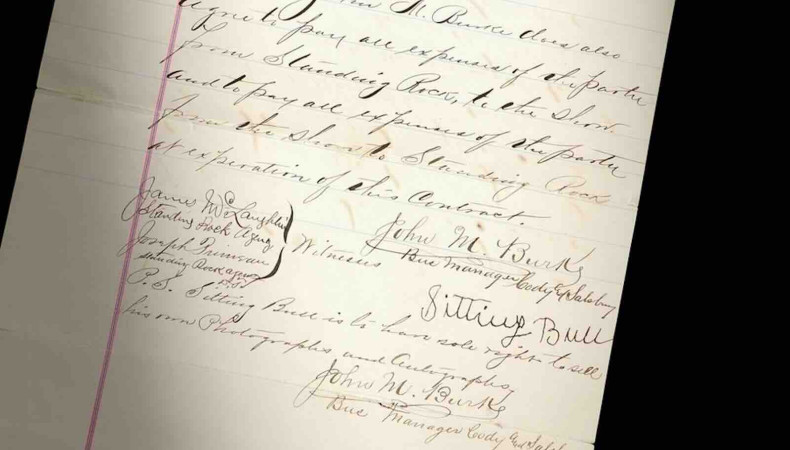 John M. Burke does also
agree to pay all expenses of the partie
from Standing Rock, to the Show
and to pay all expenses of the partie
from the Show to Standing Rock
at experation of this Contract.
James McLaughlin
Standing Rock Agency
Joseph Primeau
Standing Rock Agency
Witnesses
John M. Burke
Bus Manager Cody & Salsbury
Sitting Bull
P.S. Sitting Bull is to have sole right to sell
his own Photographs and Autographs.
John M. Burke
Bus Manager Cody and Salsb